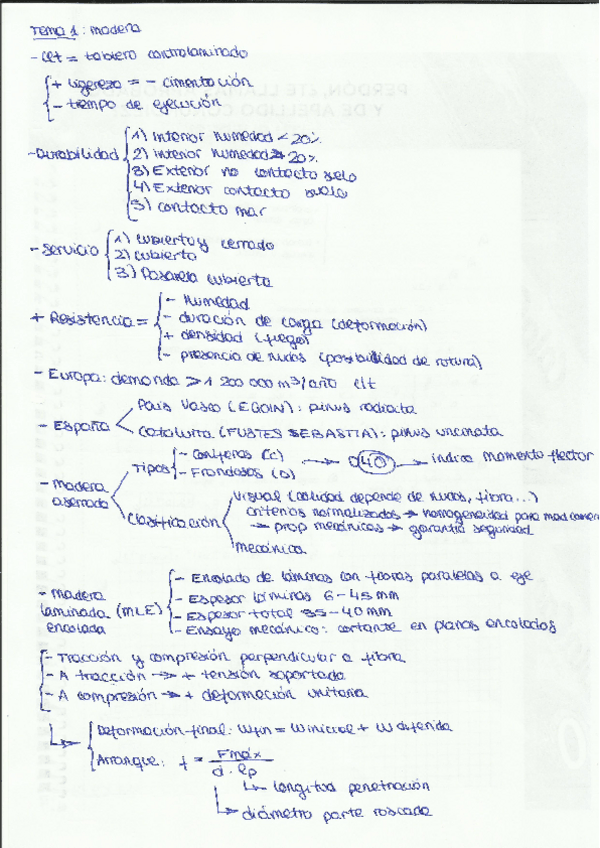 Tema 1: madera
- CLT = tablero contralaminado
+ ligereza = - cimentación
- tiempo de ejecución
- Durabilidad
1) Interior humedad < 20%
2) interior humedad > 20%
3) Exterior no contacto suelo
4) Exterior contacto suelo
5) contacto mar
- Servicio
1) cubierto y cerrado
2) cubierto
3) Pasarela cubierta
+ Resistencia =
- humedad
- duración de carga (deformación)
+ densidad (fuego)
- presencia de nudos (posibilidad de rotura)
- Europa: demanda > 1 200 000 m³/año clt
- España
País Vasco (EGOIN): pinus radiata
Cataluña (FUSTES SEBASTIA): pinus uncinata
- madera aserrada
Tipos
- Coníferas (C)
- Frondosas (D) → D40 → indica momento flector
Clasificación
visual (calidad depende de nudos, fibra...)
criterios normalizados → homogeneidad para
→ prop mecánicas → garantía seguridad
mecánica
- Madera laminada encolada (MLE)
- Encolado de láminas con fibras paralelas a eje
- Espesor láminas 6-45mm
- Espesor total 35-40mm
- Ensayo mecánico: cortante en planos encolados
- Tracción y compresión perpendicular a fibra
- A tracción → + tensión soportada
- A compresión → + deformación unitaria
↳ Deformación final: Wfin = W inicial + W diferida
Arranque: f = Fmáx / d · lp
↳ longitud penetración
↳ diámetro parte roscada